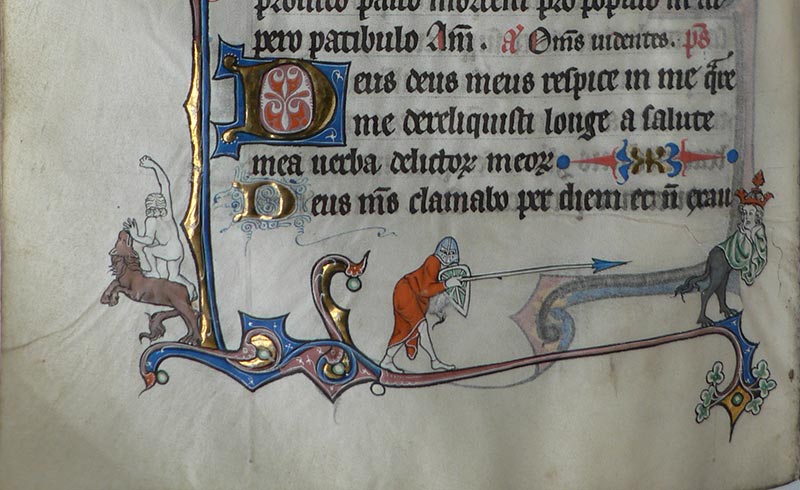 mortem pro populo in
pero patibulo Am̄. A̓ Om̄s uidentes. ps̄
Deus deus meus respice in me q̄re
me dereliquisti longe a salute
mea uerba delictoꝝ meoꝝ
Deus m̄s clamabo per diem et n̄ exau